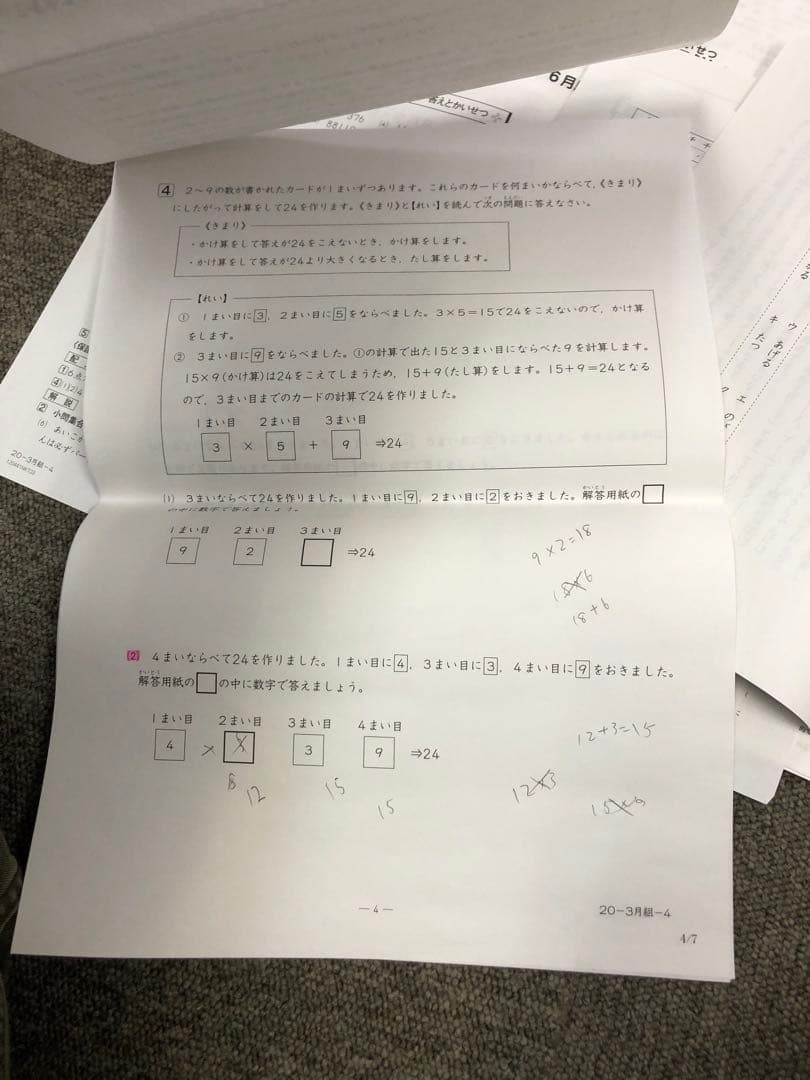 6月
答えとかいせつ
376
4 2～9の数が書かれたカードが1まいずつあります。これらのカードを何まいかならべて,《きまり》
にしたがって計算をして24を作ります。《きまり》と【れい】を読んで次の問題に答えなさい。
《きまり》
・かけ算をして答えが24をこえないとき, かけ算をします。
・かけ算をして答えが24より大きくなるとき, たし算をします。
【れい】
① 1まい目に3, 2まい目に5をならべました。3×5=15で24をこえないので, かけ算
をします。
② 3まい目に9をならべました。①の計算で出た15と3まい目にならべた9を計算します。
15×9(かけ算)は24をこえてしまうため, 15+9(たし算)をします。15+9=24となる
ので, 3まい目までのカードの計算で24を作りました。
1まい目 2まい目 3まい目
3 × 5 + 9 ⇒24
(1) 3まいならべて24を作りました。1まい目に9, 2まい目に2をおきました。解答用紙の□
の中に数字で答えましょう。
1まい目 2まい目 3まい目
9 2 □ ⇒24
9×2=18
18+6
(2) 4まいならべて24を作りました。1まい目に4, 3まい目に3, 4まい目に9をおきました。
解答用紙の□の中に数字で答えましょう。
1まい目 2まい目 3まい目 4まい目
4 × 3 9 ⇒24
12 15
15
12+3=15
12×3
—4—
20-3月組-4
4/7
解説
② 小問集合
20-3月組-4
ウ あげる
キ たつ
エ
ク